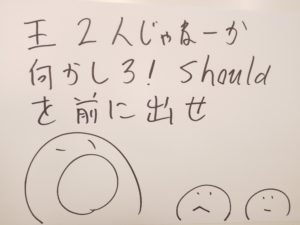 王 2人じゃねーか
何かしろ! Should
を前に出せ